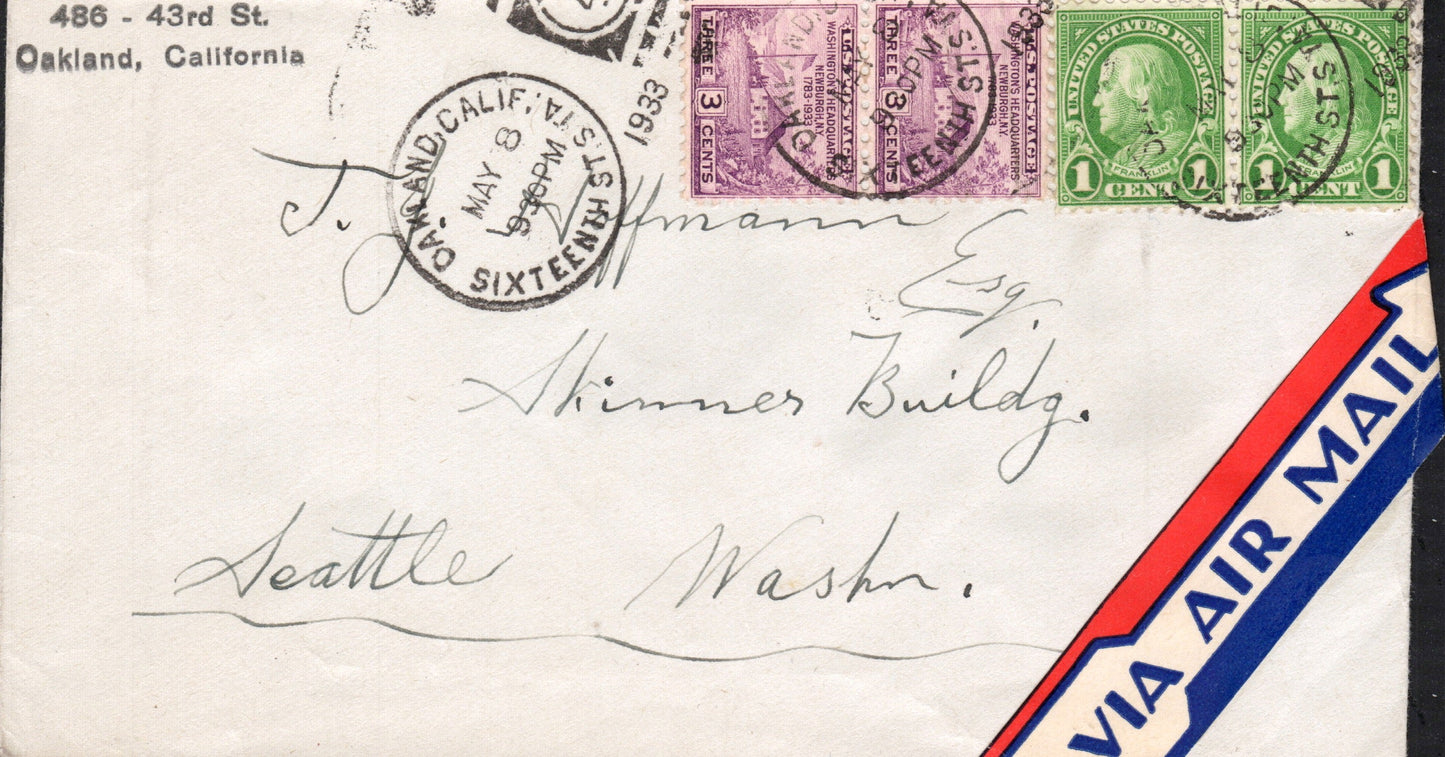 486 - 43rd St.
Oakland, California
OAKLAND, CALIF.
SIXTEENTH ST. STA.
MAY 8
9 30PM
1933
THREE 3 CENTS
U.S. POSTAGE
WASHINGTON'S HEADQUARTERS
NEWBURGH, N.Y.
1783-1933
THREE 3 CENTS
U.S. POSTAGE
WASHINGTON'S HEADQUARTERS
NEWBURGH, N.Y.
1783-1933
1933
UNITED STATES POSTAGE
FRANKLIN
1 CENT 1
UNITED STATES POSTAGE
FRANKLIN
1 CENT 1
1933
T. J.
Esq.
Skinner Buildg.
Seattle Washn.
VIA AIR MAIL